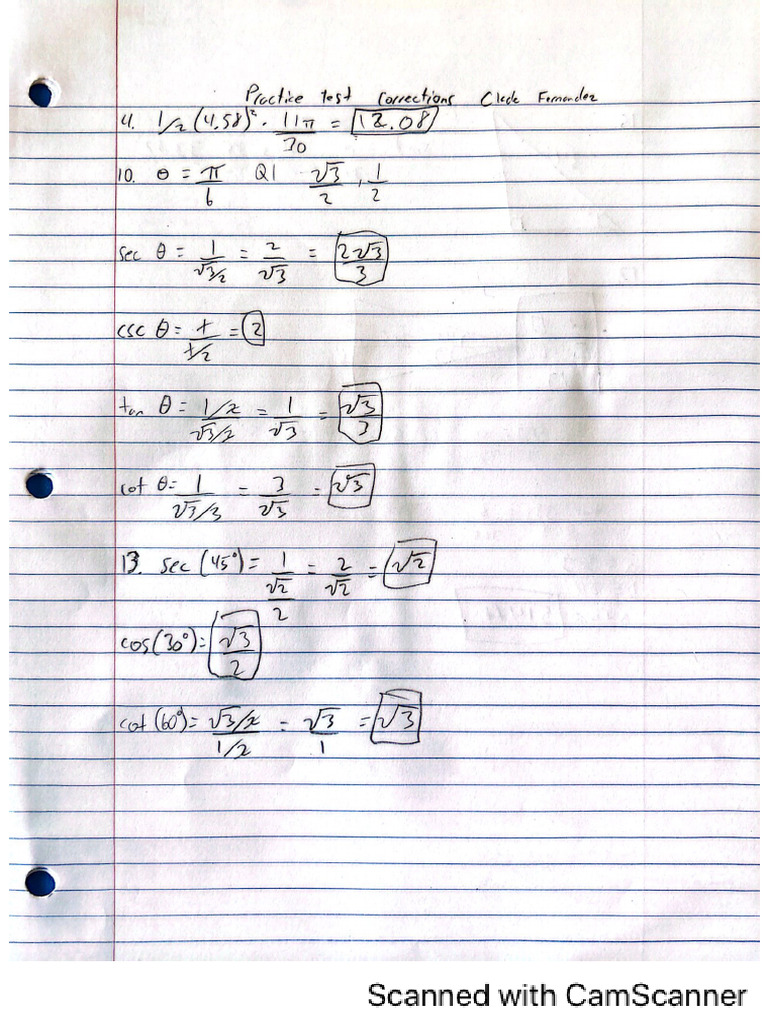 Practice Test Corrections Clede Fernandez
4. 1/2 (4.58)² · 11π/30 = 12.08
10. θ = π/6 Q1 √3/2 , 1/2
sec θ = 1/(√3/2) = 2/√3 = 2√3/3
csc θ = 1/(1/2) = 2
tan θ = (1/2)/(√3/2) = 1/√3 = √3/3
cot θ = 1/(√3/3) = 3/√3 = √3
13. sec (45°) = 1/(√2/2) = 2/√2 = √2
cos(30°) = √3/2
cot (60°) = (√3/2)/(1/2) = √3/1 = √3
Scanned with CamScanner